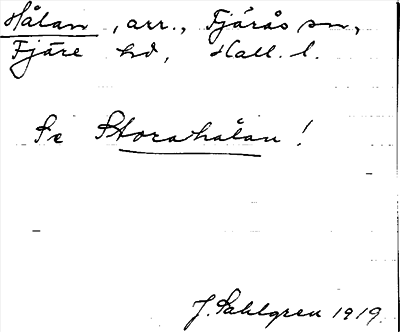 Hålan, arr., Fjärås sn,
Fjäre hd, Hall. l.
Se Storahålan!
J. Sahlgren 1919.